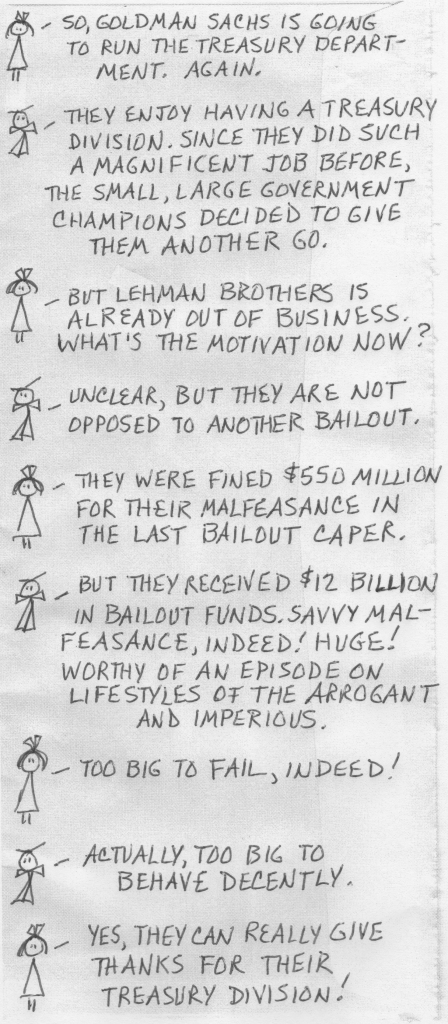 SO, GOLDMAN SACHS IS GOING
TO RUN THE TREASURY DEPART-
MENT. AGAIN.
THEY ENJOY HAVING A TREASURY
DIVISION. SINCE THEY DID SUCH
A MAGNIFICENT JOB BEFORE,
THE SMALL, LARGE GOVERNMENT
CHAMPIONS DECIDED TO GIVE
THEM ANOTHER GO.
BUT LEHMAN BROTHERS IS
ALREADY OUT OF BUSINESS.
WHAT'S THE MOTIVATION NOW?
UNCLEAR, BUT THEY ARE NOT
OPPOSED TO ANOTHER BAILOUT.
THEY WERE FINED $550 MILLION
FOR THEIR MALFEASANCE IN
THE LAST BAILOUT CAPER.
BUT THEY RECEIVED $12 BILLION
IN BAILOUT FUNDS. SAVVY MAL-
FEASANCE, INDEED! HUGE!
WORTHY OF AN EPISODE ON
LIFESTYLES OF THE ARROGANT
AND IMPERIOUS.
TOO BIG TO FAIL, INDEED!
ACTUALLY, TOO BIG TO
BEHAVE DECENTLY.
YES, THEY CAN REALLY GIVE
THANKS FOR THEIR
TREASURY DIVISION!